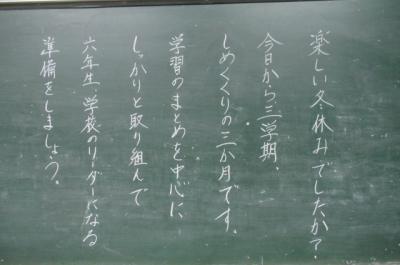 楽しい冬休みでしたか?
今日から三学期、
しめくくりの三か月です。
学習のまとめを中心に
しっかりと取り組んで
六年生、学校のリーダーになる
準備をしましょう。